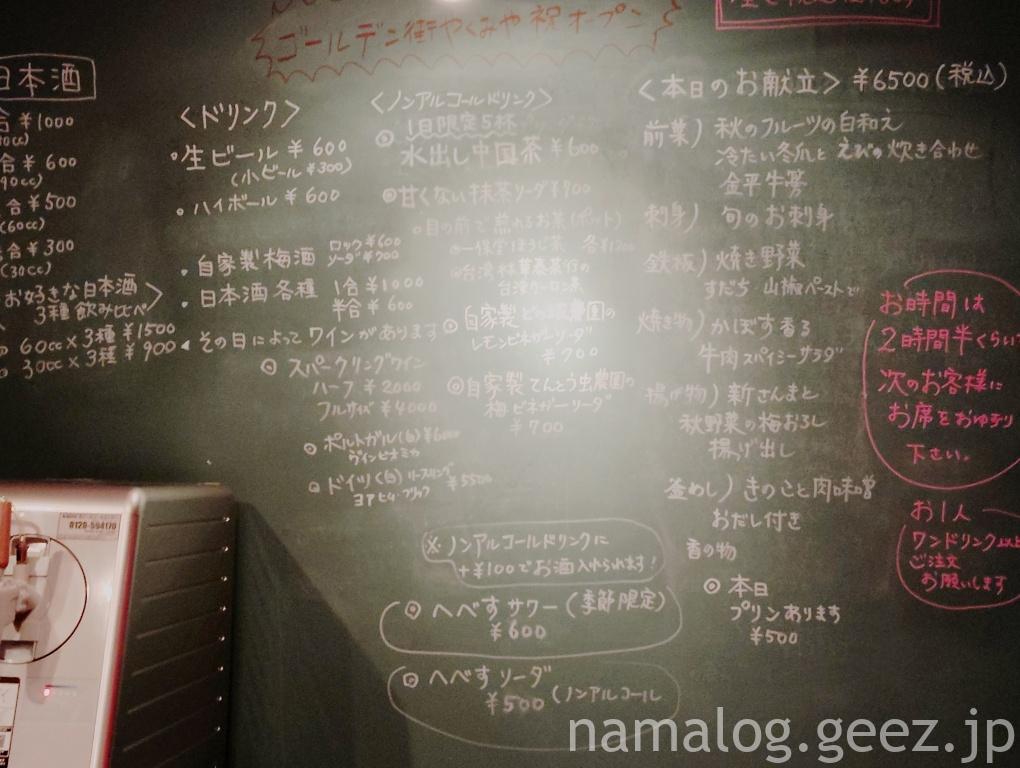 ゴールデン街やくみや祝オープン
日本酒
合 ¥1000
合 ¥600
(90cc)
合 ¥500
(60cc)
合 ¥300
(30cc)
お好きな日本酒
3種飲み比べ〉
60cc×3種 ¥1500
30cc×3種 ¥900
〈ドリンク〉
・生ビール ¥600
(小ビール ¥300)
・ハイボール ¥600
・自家製梅酒 ロック¥600
ソーダ¥700
・日本酒各種 1合 ¥1000
半合 ¥600
その日によってワインがあります
◎スパークリングワイン
ハーフ ¥2000
フルサイズ ¥4000
ポルトガル(白)
ドイツ(白) リースリング ¥5500
〈ノンアルコールドリンク〉
◎1日限定5杯
水出し中国茶 ¥600
◎甘くない抹茶ソーダ ¥700
◎目の前で煎れるお茶(ポット)
◎一保堂ほうじ茶 各¥1200
◎台湾林華泰茶行の
台湾ウーロン茶
◎自家製 農園の
レモンビネガーソーダ
¥700
◎自家製てんとう虫農園の
梅ビネガーソーダ
¥700
※ノンアルコールドリンクに
+¥100でお酒入れられます!
◎へべすサワー(季節限定)
¥600
◎へべすソーダ
¥500 (ノンアルコール
〈本日のお献立〉 ¥6500(税込)
前菜) 秋のフルーツの白和え
冷たい冬瓜とえびの炊き合わせ
金平牛蒡
刺身) 旬のお刺身
鉄板) 焼き野菜
すだち 山椒ペーストで
焼き物) かぼす香る
牛肉スパイシーサラダ
揚げ物) 新さんまと
秋野菜の梅おろし
揚げ出し
釜めし) きのこと肉味噌
おだし付き
香の物
◎本日
プリンあります
¥500
お時間は
2時間半くらい
次のお客様に
お席をおゆずり
下さい。
お1人
ワンドリンク以上
ご注文
お願いします
0120-594170
namalog.geez.jp